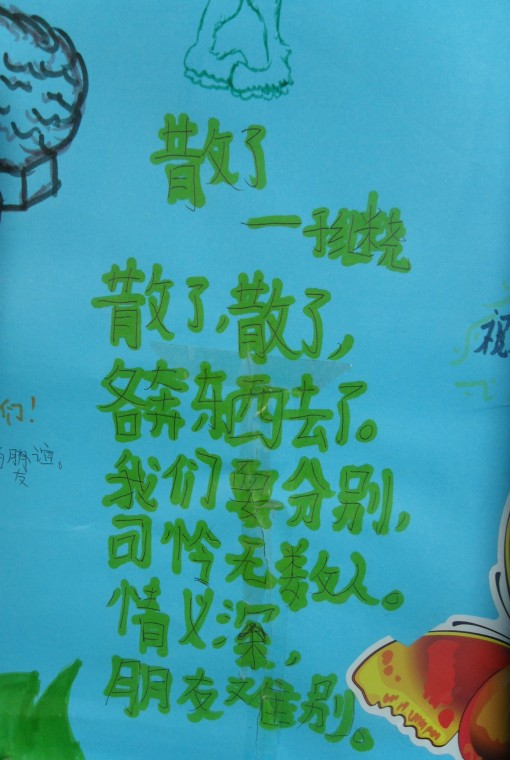 散了
一于继尧
散了,散了,
各奔东西去了。
我们要分别,
可怜无数人。
情义深,
朋友又住别。
们!
朋谊。
友
祝